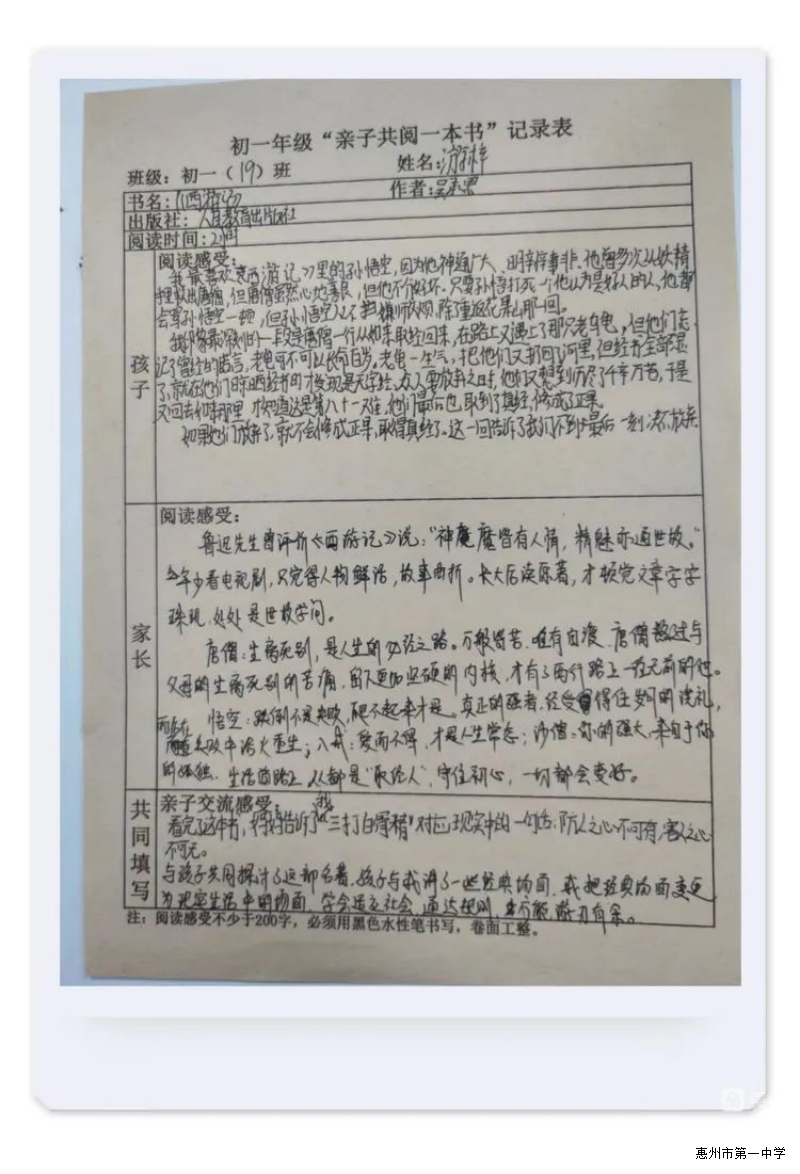 初一年级“亲子共阅一本书”记录表
班级：初一（19）班 姓名：
书名：《西游记》 作者：吴承恩
出版社：人民教育出版社
阅读时间：2周
孩子
阅读感受：
我最喜欢《西游记》里的孙悟空，因为他神通广大、明辨是非、他曾多次从妖精
里救出唐僧，但唐僧虽然心地善良，但他不分好坏。只要孙悟空打死一个他认为是好人的人，他都
会骂孙悟空一顿，但孙悟空从不，除了重返花果山那一回。
我印象最深刻的一段是唐僧一行从如来取经回来，在路上又遇上了那只老乌龟，但他们忘
记了曾经的诺言，老龟可不可以长命百岁。老龟一生气，把他们又打回了河里，但经书全部显
了，就在他们晾晒经书时才发现是无字经，众人要放弃之时，他们又想到历尽了千辛万苦，于是
又回去如来那里，才知道这是第八十一难，他们最后也取到了真经，修成了正果。
如果他们放弃了，就不会修成正果，取得真经了。这一回告诉了我们不到最后一刻，决不放弃
家长
阅读感受：
鲁迅先生曾评价《西游记》说：“神魔皆有人情，精魅亦通世故。”
年少看电视剧，只觉得人物鲜活，故事曲折。长大后读原著，才顿觉文章字字
珠玑，处处是世故学问。
唐僧：生离死别，是人生的必经之路。万般皆苦，唯有自渡，唐僧熬过与
父母的生离死别的苦痛，留下更加坚硬的内核，才有了西行路上一往无前的他。
悟空：跌倒不是失败，爬不起来才是。真正的强者，经受得住岁月的洗礼，
而能在失败中浴火重生；八戒：爱而不得，才是人生常态；沙僧：你的强大，来自于你
的孤独。生活道路上，人人都是“取经人”，守住初心，一切都会变好。
共同填写
亲子交流感受：
看完了这本书，妈妈告诉了我“三打白骨精”对应现实中的一句话：防人之心不可有，害人之心
不可无。
与孩子共同探讨了这部名著，孩子与我讲了一些经典场面，我把经典场面变更
为现实生活中的场面，学会适应社会，通达规则，方能游刃有余。
注：阅读感受不少于200字，必须用黑色水性笔书写，卷面工整。
惠州市第一中学